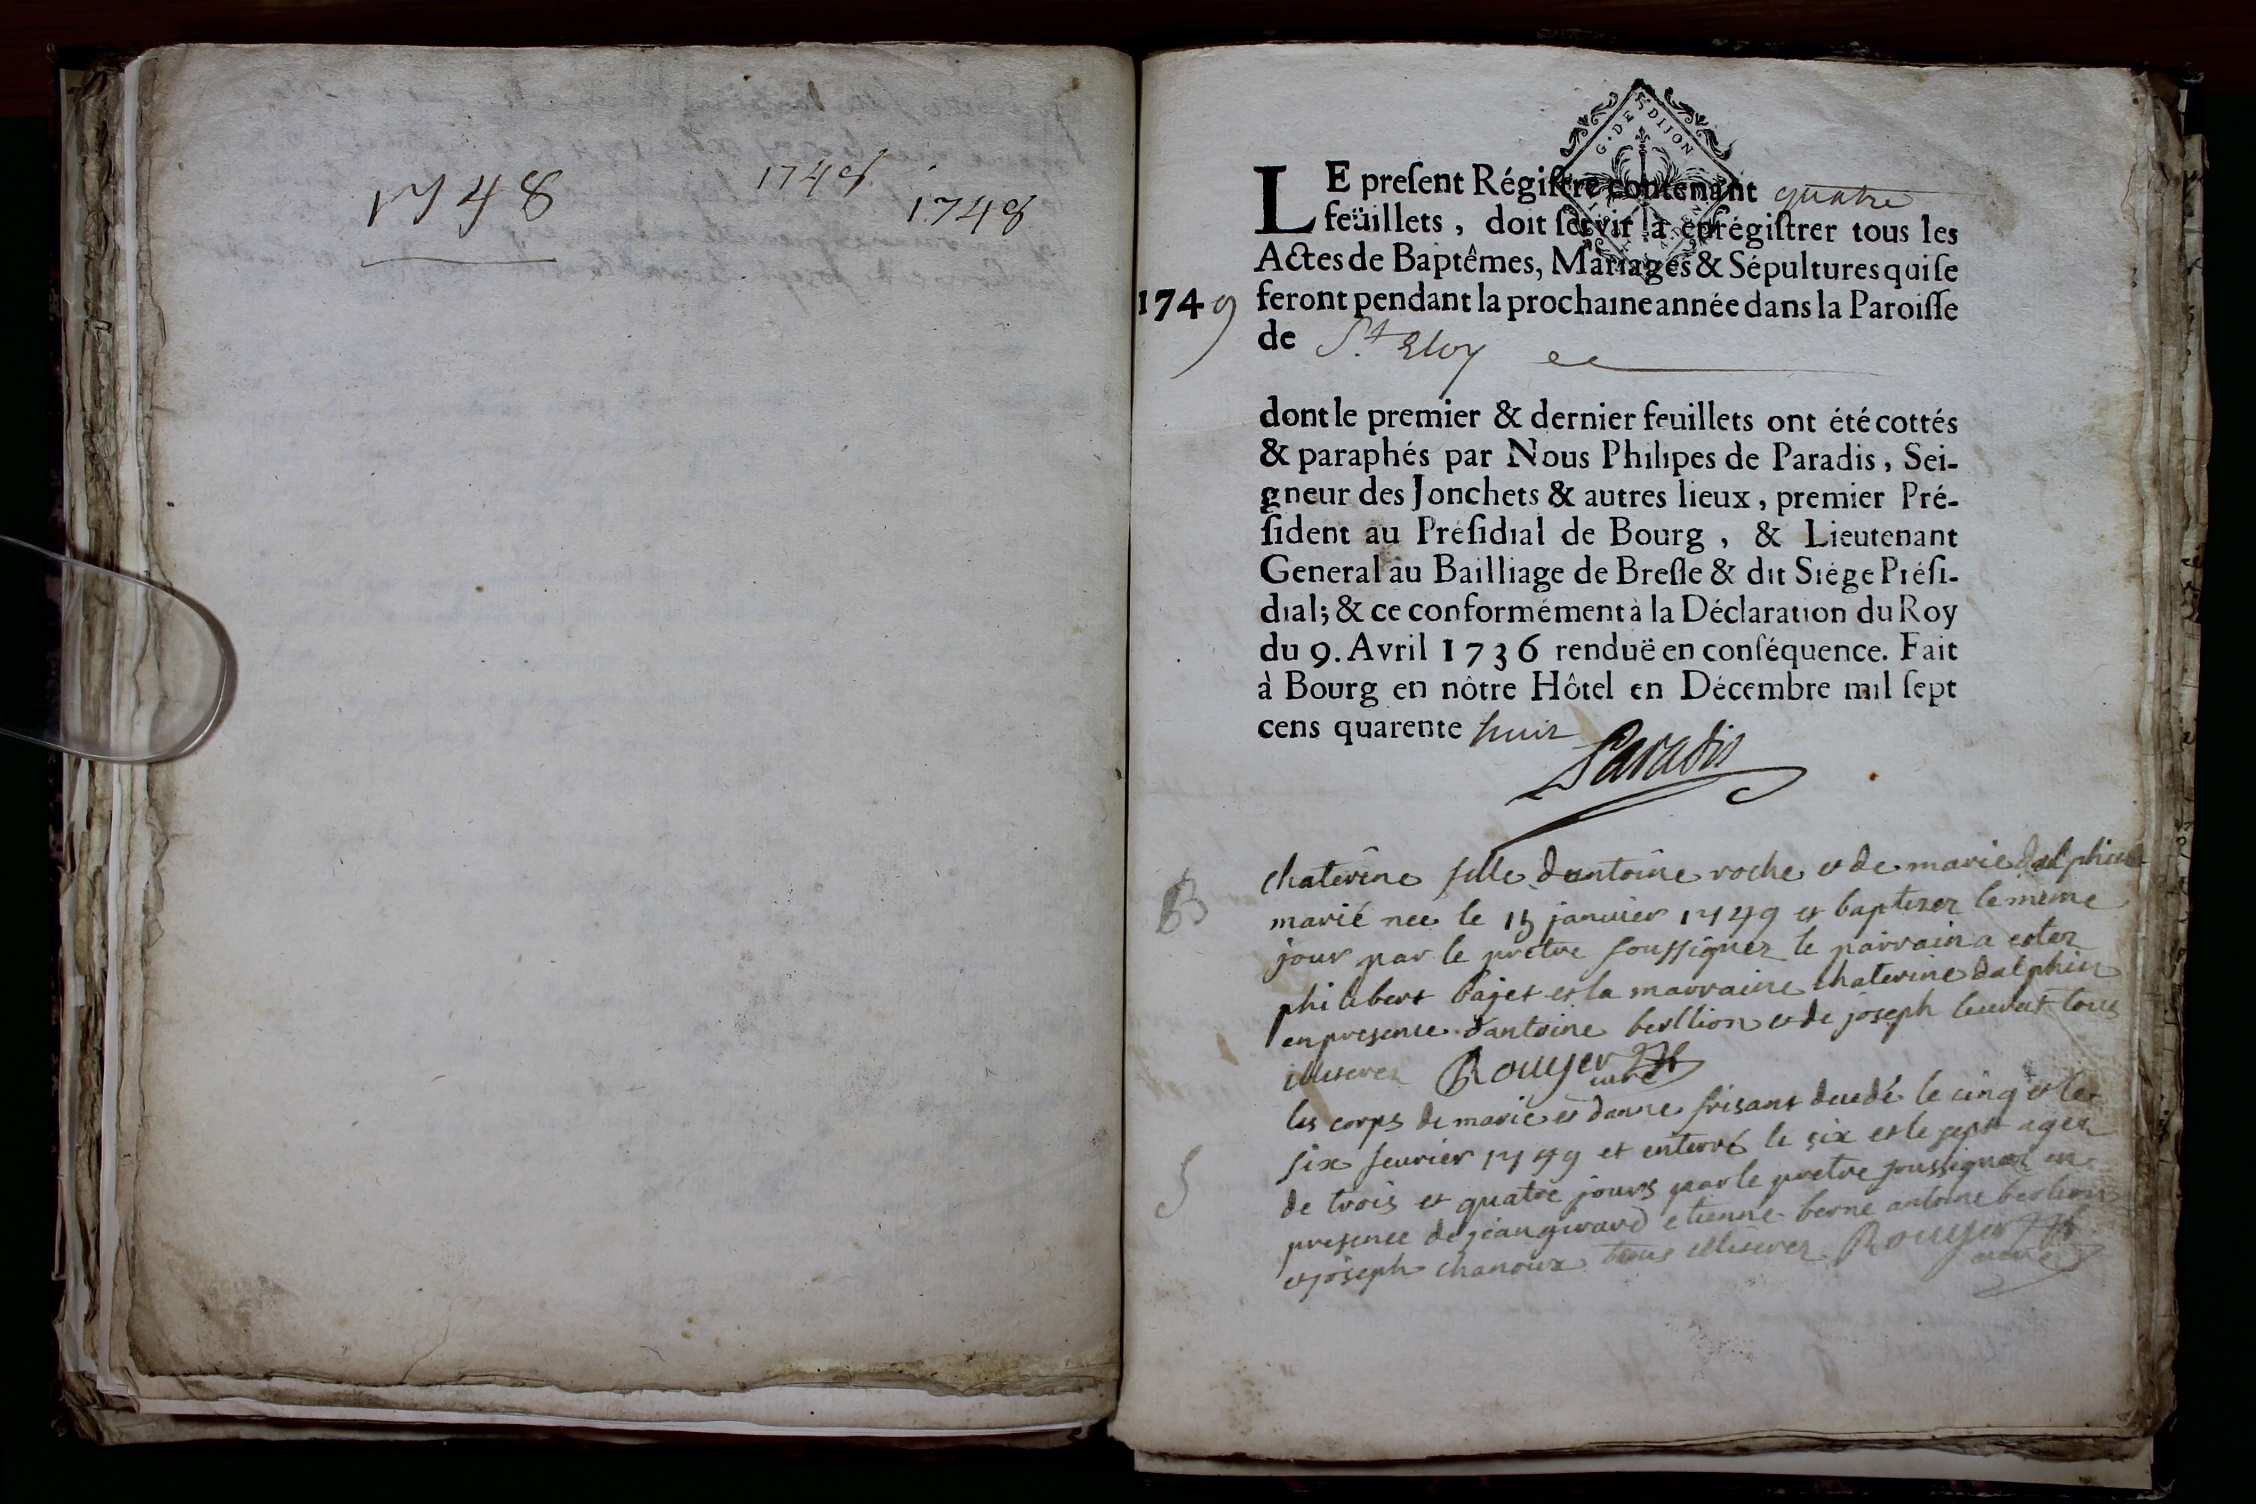 1748
1748
1748
G. DE DIJON
LE preſent Régiſtre contenant quatre
feüillets, doit ſervir à enrégiſtrer tous les
Actes de Baptêmes, Mariages & Sépultures qui ſe
1749 feront pendant la prochaine année dans la Paroiſſe
de St Eloy
dont le premier & dernier feuillets ont été cottés
& paraphés par Nous Philipes de Paradis, Sei-
gneur des Jonchets & autres lieux, premier Pré-
ſident au Préſidial de Bourg, & Lieutenant
General au Bailliage de Breſſe & dit Siége Préſi-
dial; & ce conformément à la Déclaration du Roy
du 9. Avril 1736 renduë en conſéquence. Fait
à Bourg en nôtre Hôtel en Décembre mil ſept
cens quarente huit
Paradis
B
chaterine fille dantoine roche et de marie dalphin
marié nee le 15 janvier 1749 et baptizer le meme
jour par le pretre soussigner le parrain a ester
philibert Pajet et la marraine chaterine dalphin
en presence dantoine berllion et de joseph tous
illiterez Rouyer curé
S
les corps de marie et danne frisant decedé le cinq et le
six fevrier 1749 et enterré le six et le sept agez
de trois et quatre jours par le pretre soussigner en
presence de jean girard etienne berne antoine berlion
et joseph chanoux tous illiterez Rouyer curé